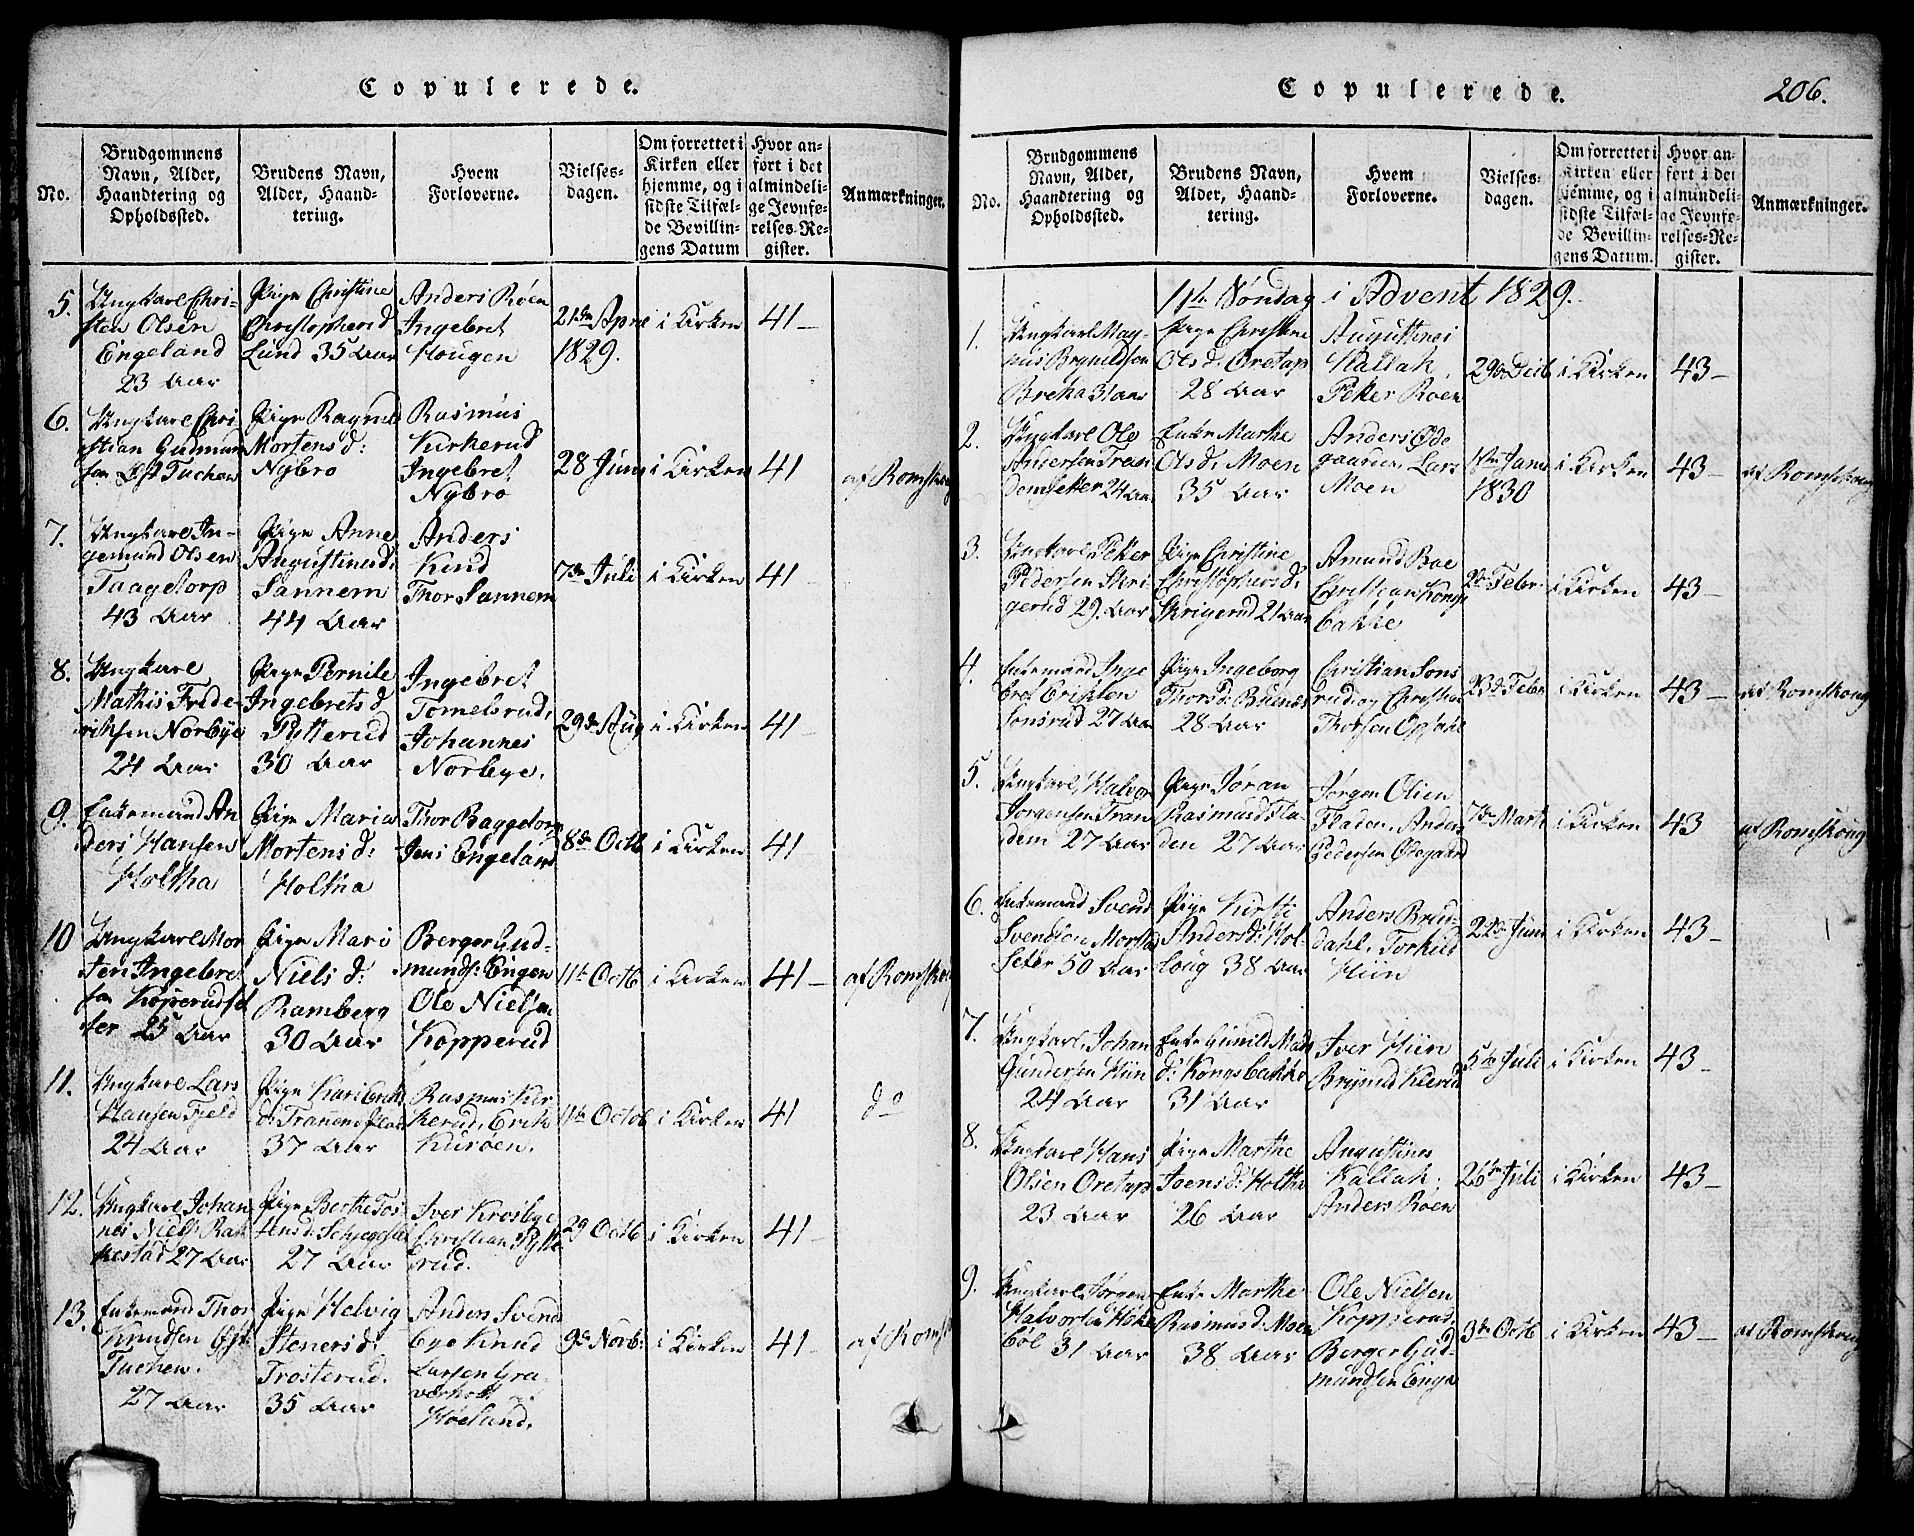 Copulerede.
No.
Brudgommens
Navn, Alder,
Haandtering og
Opholdssted.
Brudens Navn,
Alder, Haand-
tering.
Hvem
Forloverne.
Vielses-
dagen.
Om forrettet i
Kirken eller
hjemme, og i
sidste Tilfæl-
de Bevillin-
gens Datum
Hvor an-
ført i det
almindeli-
ge Jevnfø-
relses-Re-
gister.
Anmærkninger.
5.
Ungkarl Chri-
sten Olsen
Engeland
23 Aar
Pige Christine
Christophersd
Lund 35 Aar
Anders Röen
Ingebret
Hougen
21de April
1829.
i Kirken
41-
6.
Ungkarl Chri-
stian Gudmun
sen Øst Tuchen
Pige Ragnild
Mortens d:
Nybro
Rasmus
Kirkerud
Ingebret
Nybro
28 Juni
i Kirken
41
af Romskog
7.
Ungkarl In-
gemund Olsen
Taagetorp
43 Aar
Pige Anne
Augustinusd:
Sannem
44 Aar
Anders
Kind
Thor Sannem
7de Juli
i Kirken
41-
8.
Ungkarl
Mathis Frede-
riksen Norbye
24 Aar
Pige Pernile
Ingebrets d
Pytterud
30 Aar
Ingebret
Tomelsrud,
Johannes
Norbye.
29de Aug
i Kirken
41-
9.
Enkemand An
ders Hansen
Holtha
Pige Maria
Mortens d:
Holtha
Thor Baggetorp
Jens Engeland
8de Octb
i Kirken
41
10
Ungkarl Mor
ten Ingebret
sen Kopperudsæ
ter 25 Aar
Pige Mari
Niels d:
Ramberg
30 Aar
Berger Gud-
munds: Engen
Ole Nielsen
Kopperud
11te Octb
i Kirken
41-
af Romskog
11.
Ungkarl Lars
Hansen Fjeld
24 Aar
Pige Kari Eriks
d:
37 Aar
Rasmus Kir
kerud, Erik
Kuröen.
11te Octob
i Kirken
41
do
12.
Ungkarl Johan
nes Niels: Rak
kestad 27 Aar
Pige Berthe Tos
tens d:
27 Aar
Iver Krosbye
Christian Pytte
rud.
29 Octb
i Kirken
41-
13.
Enkemand Thor
Knudsen Øst
Tuchen.
27 Aar
Pige Helvig
Steners d:
Trosterud.
35 Aar
Anders Svends
bye Knud
Larsen Gra-
verholt af
Høeland.
9de Novb:
i Kirken
41-
af Romsk
Copulerede.
206.
No.
Brudgommens
Navn, Alder,
Haandtering og
Opholdssted.
Brudens Navn,
Alder, Haand-
tering.
Hvem
Forloverne.
Vielses-
dagen.
Om forrettet i
Kirken eller
hjemme, og i
sidste Tilfæl-
de Bevillin-
gens Datum.
Hvor an-
ført i det
almindeli-
ge Jevnfø-
relses-Re-
gister.
Anmærkninger.
1ste Söndag i Advent 1829.
1.
Ungkarl Mag-
nus Brynildsen
Breka 31 Aar
Pige Christine
Ols d. Oretap
28 Aar
Augustinus
Kallak,
Peter Roen
29de Decb
i Kirken
43-
2.
Ungkarl Ole
Andersen Tran
demsæter 24 Aar
Enke Marthe
Ols d: Moen
35 Aar
Anders Øde
gaarden Lars
Moen
1830
i Kirken
43-
af Romskoug
3.
Ungkarl Peter
Pedersen Skri
gerud 29. Aar
Pige Christine
Christophers d:
Skrigerud 21 Aar
Amund Boe
Christian Kongs
bakke
2de Febr.
i Kirken
43-
4.
Enkemand Inge
bret Eriksen
Sonsrud 27 Aar
Pige Ingeborg
Thors d:
28 Aar
Christian Sons
rud og Christian
Thorsen Opsahl
23de Febr
i Kirken
43-
af Romskoug
5.
Ungkarl, Halvor
Jorgensen Tran
dem 27 Aar
Pige Jöran
Rasmusd Fla-
den 27 Aar
Jørgen Olsen
Fladen, Anders
Pedersen Ødegaard
7de Marts
i Kirken
43
af Romskoug
6.
Enkemand Svend
Svendsen Morsta
sæter 50 Aar
Pige Kirsti
Anders d: Hol-
loug 38 Aar
Anders Brau-
dahl, Torkild
Hiin
i Kirken
43-
7.
Ungkarl, Johan
Gundersen Hiin
24 Aar
Enke Gunild Mads
d: Kongsbakke
31 Aar
Iver Hiin
Brynild Klerud
5te Juli
i Kirken
43-
8.
Ungkarl Hans
Olsen Oretap
23 Aar
Pige Marthe
Joens d: Holtha
26 Aar
Augustines
Kallak,
Anders Röen
26de Juli
i Kirken
43-
9.
Ungkarl, Jørgen
Halvorsen
böl 31 Aar
Enke Marthe
Rasmus d. Moen
38 Aar
Ole Nielsen
Kopperud,
Berger Gud-
mundsen Enge
3de Octb
i Kirken
43-
af Romskoug